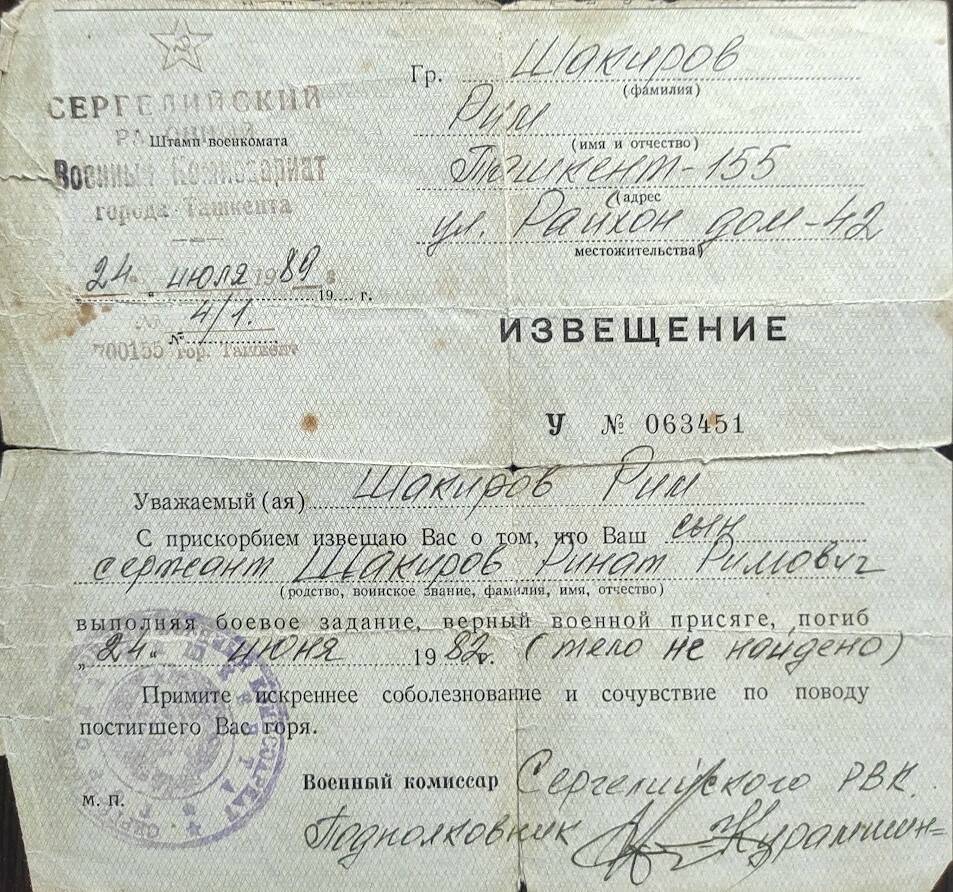 СЕРГЕЛИЙСКИЙ
РАЙОННЫЙ
Штамп военкомата
Военный Комиссариат
города Ташкента
24 июля 1989 г.
19.... г.
№ 4/1.
№
700155 гор. Ташкент
Гр. Шакиров
(фамилия)
Рим
(имя и отчество)
Ташкент-155
(адрес
ул. Райхон дом-42
местожительства)
ИЗВЕЩЕНИЕ
У № 063451
Уважаемый (ая) Шакиров Рим
С прискорбием извещаю Вас о том, что Ваш сын
сержант Шакиров Ринат Римович
(родство, воинское звание, фамилия, имя, отчество)
выполняя боевое задание, верный военной присяге, погиб
„24" июня 1982 г. (тело не найдено)
Примите искреннее соболезнование и сочувствие по поводу
постигшего Вас горя.
Военный комиссар Сергелийского РВК.
М. П.
Подполковник